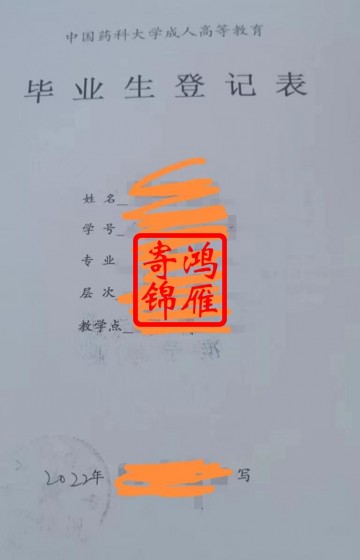 中国药科大学成人高等教育
毕业生登记表
姓名
学号
专业
层次
教学点
寄鸿
锦雁
2022年 写